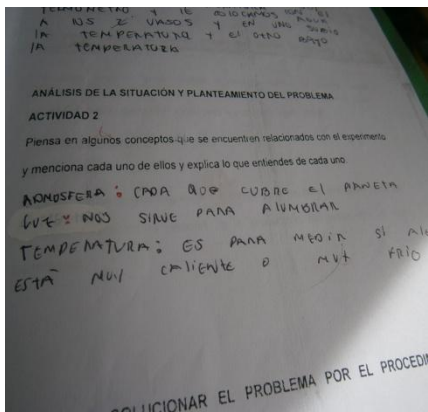 TERMOMETRO Y LE COLOCAMOS
A LOS 2 VASOS Y EN UNO AGUA
LA TEMPERATURA Y EL OTRO BAJO
LA TEMPERATURA
ANÁLISIS DE LA SITUACIÓN Y PLANTEAMIENTO DEL PROBLEMA
ACTIVIDAD 2
Piensa en algunos conceptos que se encuentren relacionados con el experimento
y menciona cada uno de ellos y explica lo que entiendes de cada uno
ADMOSFERA: CADA QUE CUBRE El PANETA
LUZ: NOS SIRVE PARA ALUMBRAR
TEMPERATURA: ES PARA MEDIR SI
ESTA MUY CALIENTE O MUY FRIO
SOLUCIONAR EL PROBLEMA POR EL